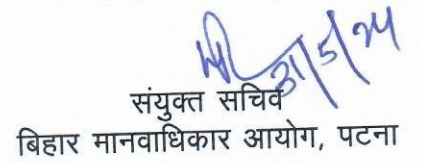 31/5/24
संयुक्त सचिव
बिहार मानवाधिकार आयोग, पटना